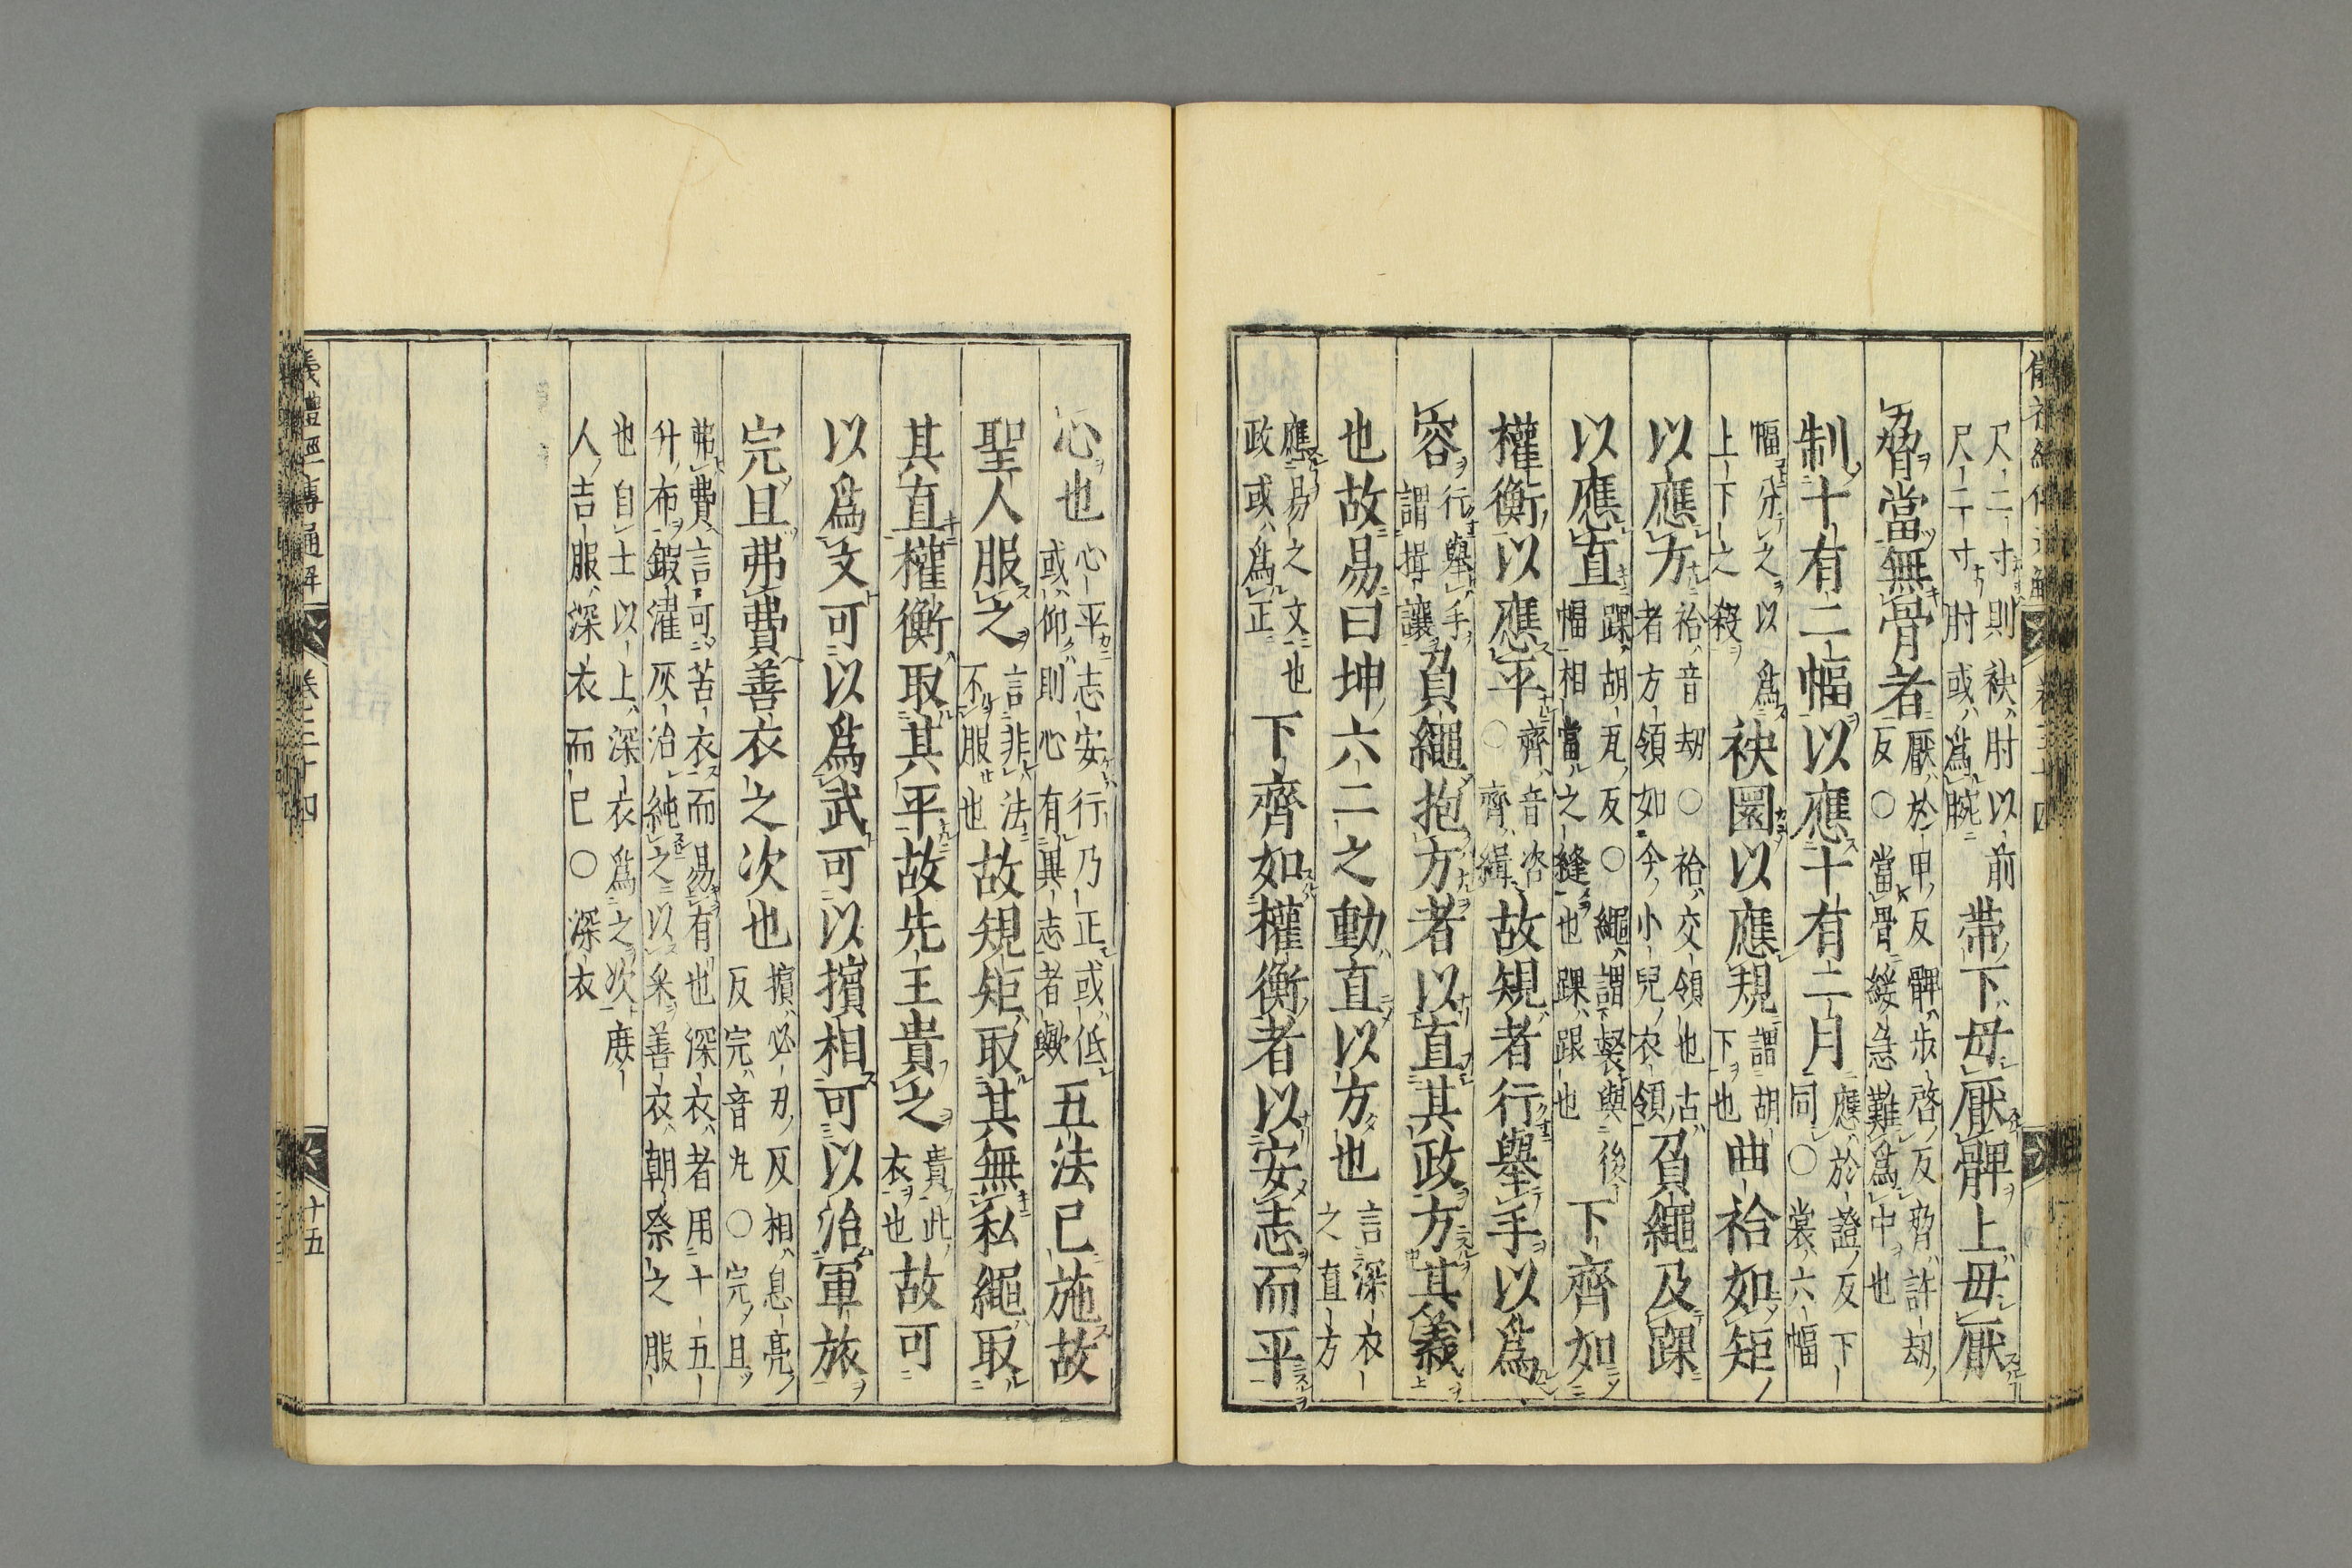 尺二寸則袂肘以前
尺二寸肘或爲腕
帶下毋厭髀上毋厭
脅當無骨者
厭於甲反髀步啓反脅許劫
反○當骨緩急難爲中也
制十有二幅以應十有二月
應於證反下
同○裳六幅
幅分之以爲
上下之殺
袂圜以應規
謂胡
下也
曲袷如矩
以應方
袷音劫○袷交領也古
者方領如今小兒衣領
負繩及踝
以應直
踝胡瓦反○繩謂裻與後
幅相當之縫也踝跟也
下齊如
權衡以應平
齊音咨
○齊緝
故規者行舉手以爲
容
行舉手
謂揖讓
負繩抱方者以直其政方其義
也故易曰坤六二之動直以方也
言深衣
之直方
應易之文也
政或爲正
下齊如權衡者以安志而平
心也
心平志安行乃正或低
或仰則心有異志者歟
五法已施故
聖人服之
言非法
不服也
故規矩取其無私繩取
其直權衡取其平故先王貴之
貴此
衣也
故可
以爲文可以爲武可以擯相可以治軍旅
完且弗費善衣之次也
擯必刃反相息亮
反完音丸○完且
弗費言可苦衣而易有也深衣者用十五
升布鍛濯灰治純之以采善衣朝祭之服
也自士以上深衣爲之次庶
人吉服深衣而已○深衣
儀禮經傳通解 卷三十四 十五